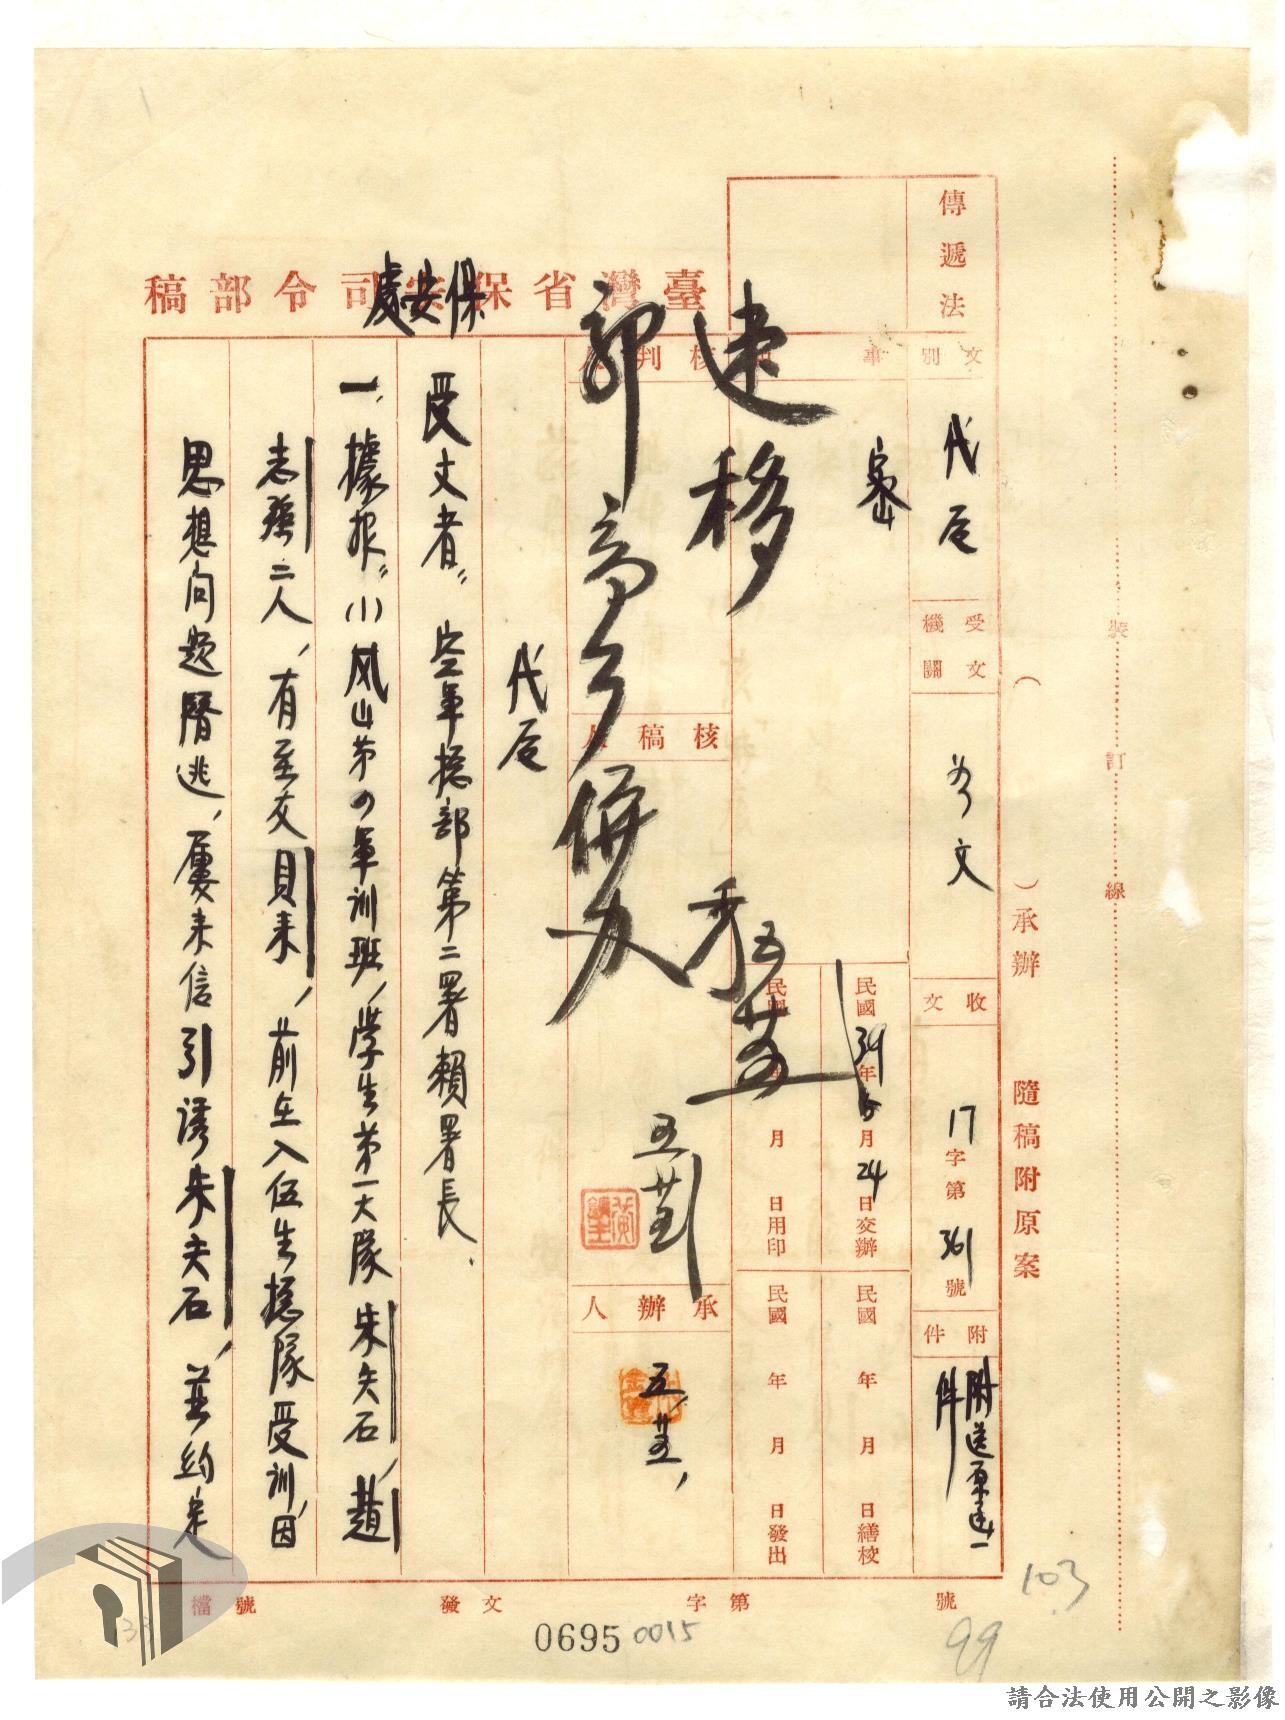 臺灣省保安司令部稿
保安處
傳遞法
文別
代電
受文機關
如文
收文
17字第361號
附件
附送原函一件
事由
密
民國39年5月24日交辦
民國 年 月 日繕校
民國 年 月 日用印
民國 年 月 日發出
核判人
速移
郭亭併办
核稿人
承辦人
五
代電
受文者:空軍總部第二署賴署長.
一、據报:(1)凤山第四軍訓班,學生第一大隊朱夫石,趙
志 二人,有至友貝来,前在入伍生總隊受訓,因
思想问题潛逃,屢来信引誘朱夫石,並約定
( )承辦 隨稿附原案
裝 訂 線
檔號 發文 字第 號
0695
0015
99
103
請合法使用公開之影像